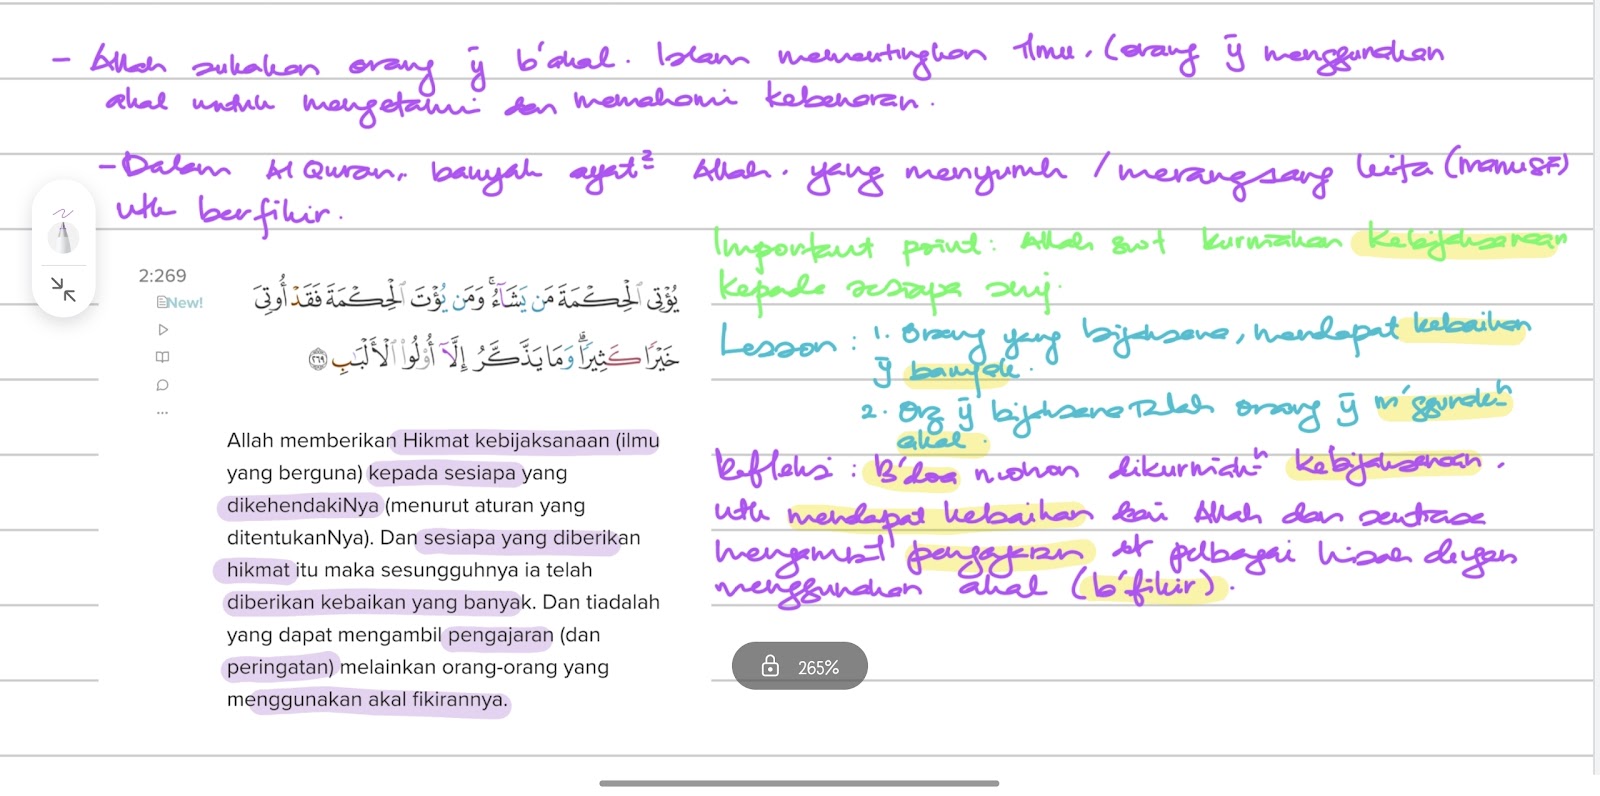 - Allah sukakan orang ȳ b'akal. Islam mementingkan Ilmu. (orang ȳ menggunakan
akal untuk mengetahui dan memahami kebenaran.
- Dalam Al Quran, banyak ayat² Allah. yang menyuruh / merangsang kita (manusia)
utk berfikir.
2:269
New!
يُؤْتِى ٱلْحِكْمَةَ مَن يَشَآءُ ۚ وَمَن يُؤْتَ ٱلْحِكْمَةَ فَقَدْ أُوتِىَ
خَيْرًا كَثِيرًا ۗ وَمَا يَذَّكَّرُ إِلَّآ أُو۟لُوا۟ ٱلْأَلْبَـٰبِ ٢٦٩
Allah memberikan Hikmat kebijaksanaan (ilmu
yang berguna) kepada sesiapa yang
dikehendakiNya (menurut aturan yang
ditentukanNya). Dan sesiapa yang diberikan
hikmat itu maka sesungguhnya ia telah
diberikan kebaikan yang banyak. Dan tiadalah
yang dapat mengambil pengajaran (dan
peringatan) melainkan orang-orang yang
menggunakan akal fikirannya.
Important point: Allah swt kurniakan kebijaksanaan
kepada sesiapa
Lesson : 1. Orang yang bijaksana, mendapat kebaikan
ȳ banyak.
2. Org ȳ bijaksana Ialah orang ȳ m'ggunakⁿ
akal.
Refleksi : B'doa mohon dikurniakⁿ kebijaksanaan.
utk mendapat kebaikan dari Allah dan sentiasa
mengambil pengajaran pelbagai kisah dengan
menggunakan akal (b'fikir).
265%